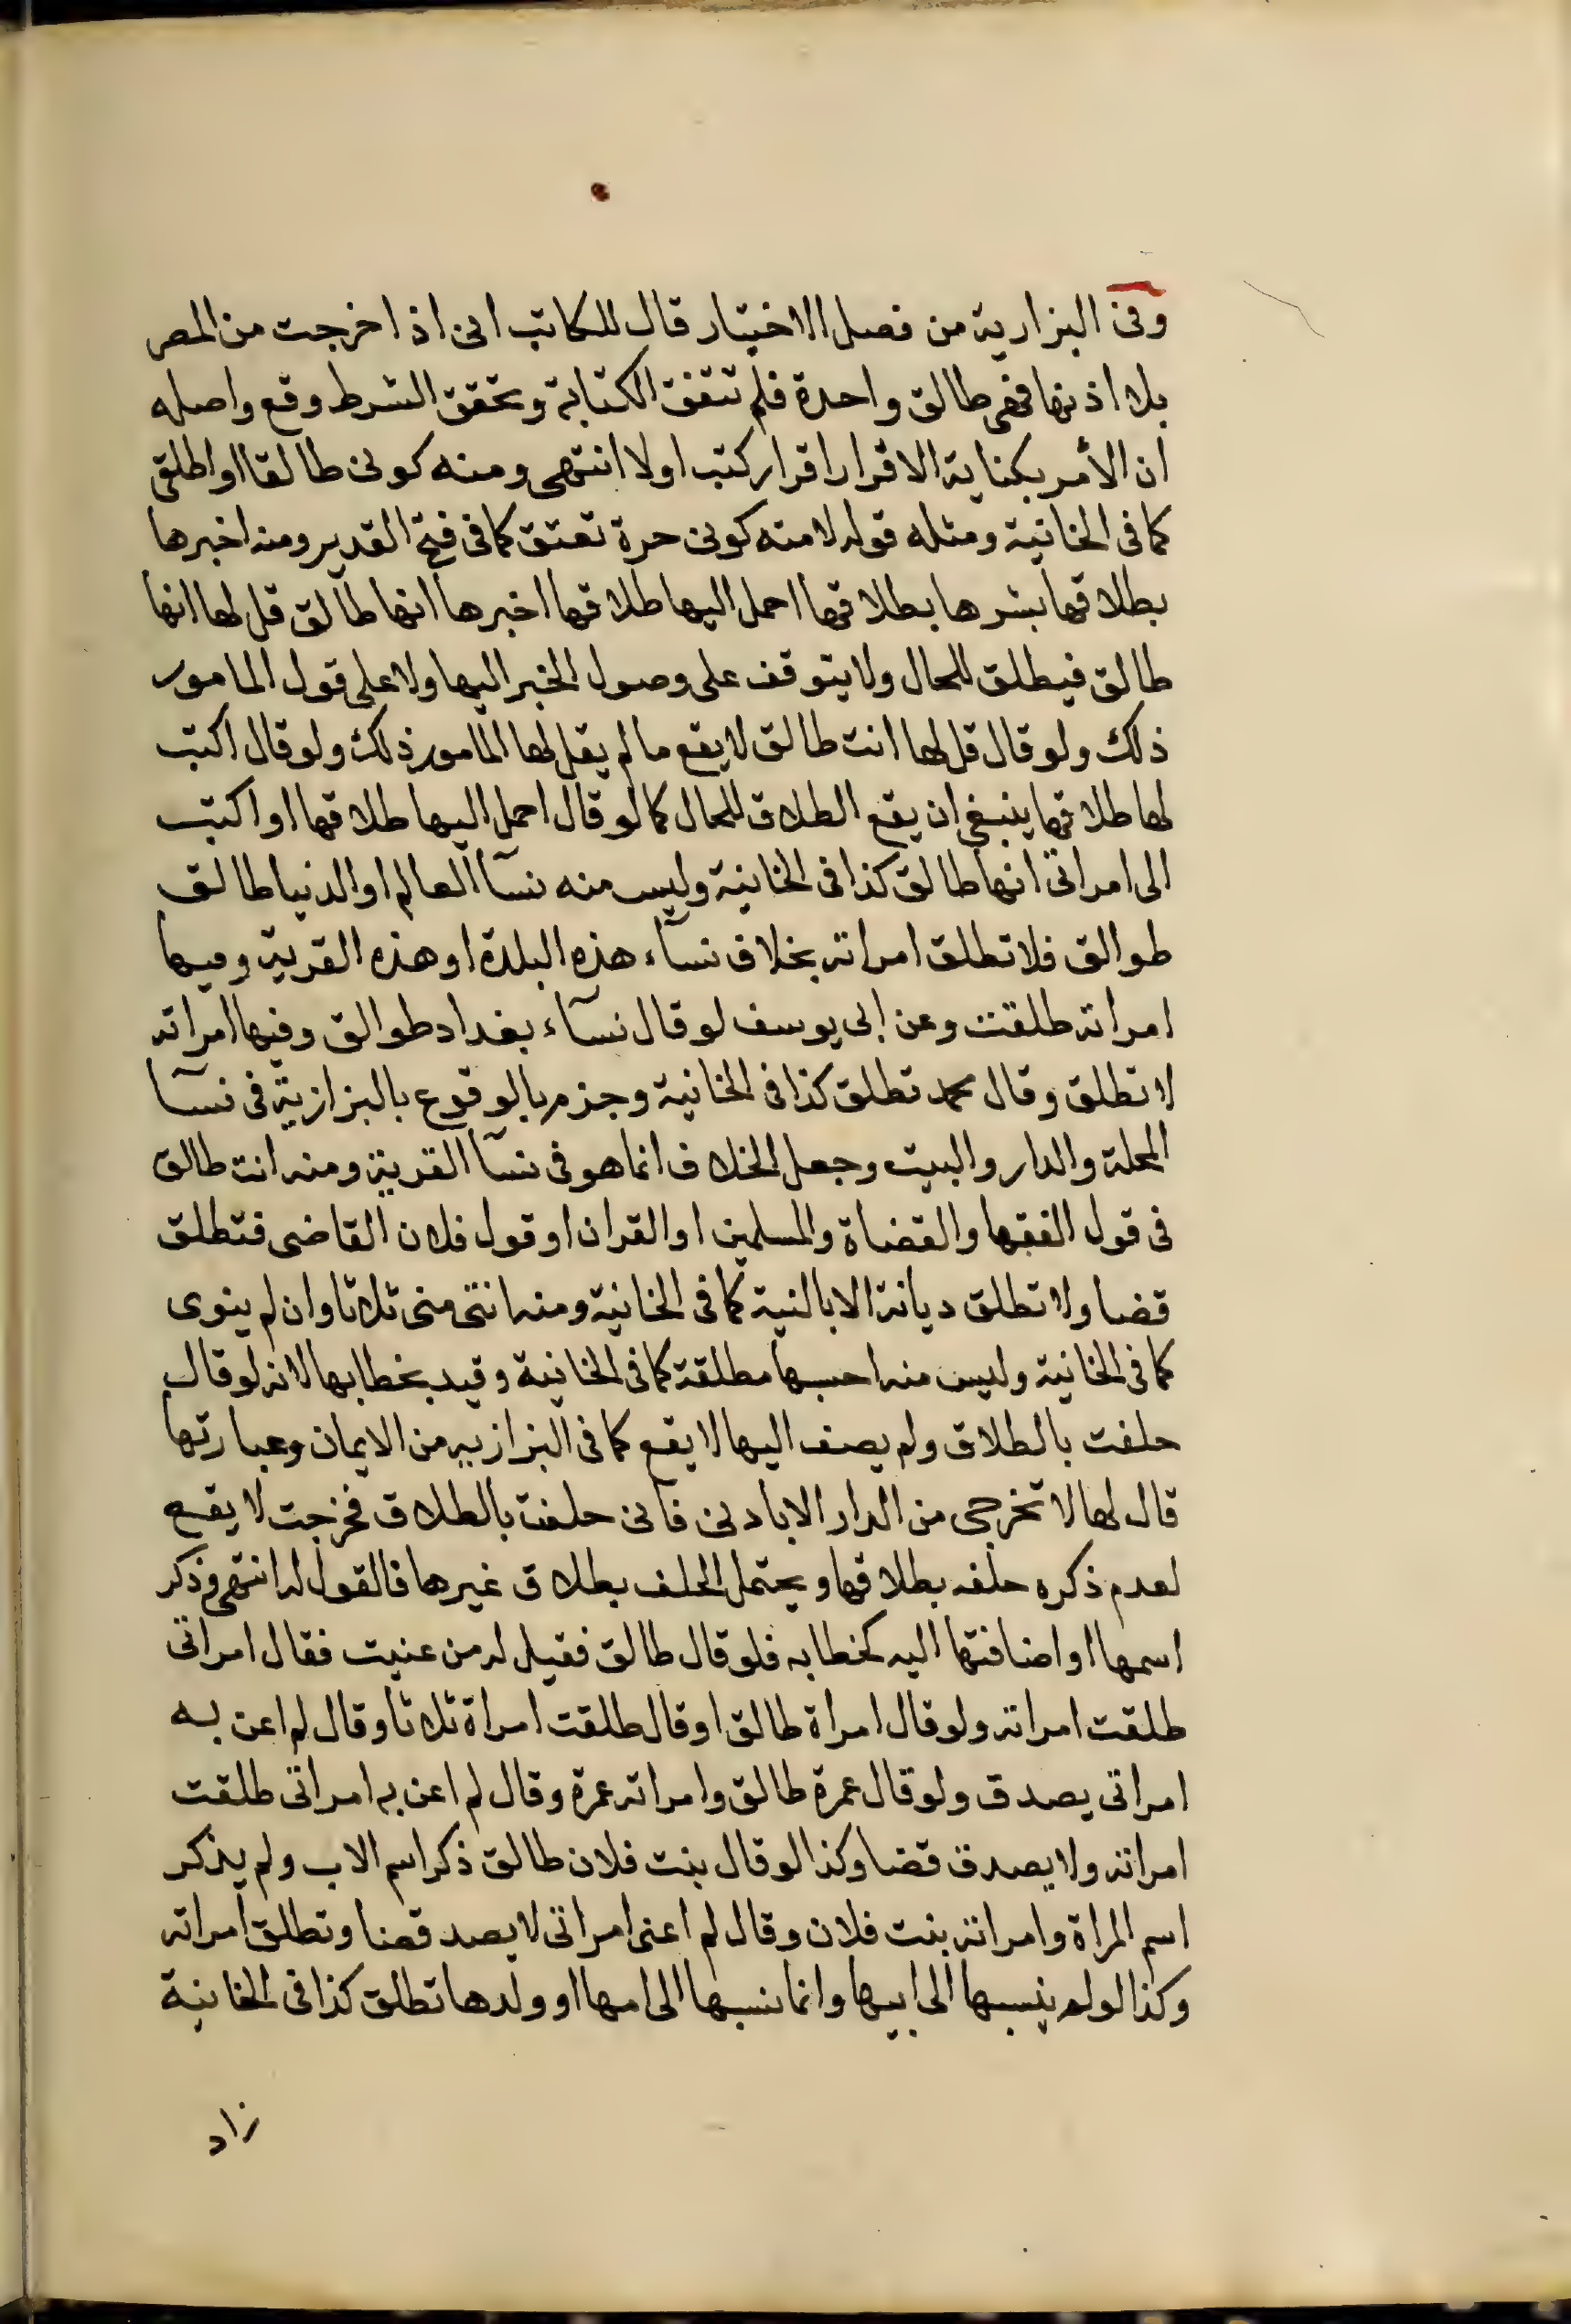 وفى البزارية من فصل الاختيار قال للكاتب انى اذا خرجت من المصر
بلا اذنها فهى طالق واحدة فلم تتفق الكتابة وتحقق الشرط وقع واصله
ان الأمر بكتابة الاقرار اقرار كتب اولا انتهى ومنه كونى طالقا او اطلقى
كما فى الخانية ومثله قوله لامته كونى حرة تعتق كما فى فتح القدير ومنه اخبرها
بطلاقها بشرها بطلاقها احمل اليها طلاقها اخبرها انها طالق قل لها انها
طالق فيطلق للحال ولا يتوقف على وصول الخبر اليها ولا على قول المامور
ذلك ولو قال قل لها انت طالق لا يقع ما لم يقل لها المامور ذلك ولو قال اكتب
لها طلاقها ينبغى ان يقع الطلاق للحال كما لو قال احمل اليها طلاقها او اكتب
الى امراتى انها طالق كذا فى الخانية وليس منه نسآ العالم او الدنيا طالق
طوالق فلا تطلق امراته بخلاف نسآء هذه البلدة او هذه القرية وفيها
امراته طلقت وعن ابى يوسف لو قال نسآء بغداد طوالق وفيها امراته
لا تطلق وقال محمد تطلق كذا فى الخانية وجزم بالوقوع بالبزازية فى نسآ
المحلة والدار والبيت وجعل الخلاف انما هو فى نسآ القرية ومنه انت طالق
فى قول الفقها والقضاة والمسلمين او القران او قول فلان القاضى فتطلق
قضا ولا تطلق ديانة الا بالنية كما فى الخانية ومنه انتى منى ثلاثا وان لم ينوى
كما فى الخانية وليس منه احسبها مطلقة كما فى الخانية وقيد بخطابها لانه لو قال
حلفت بالطلاق ولم يصف اليها لا يقع كما فى البزازيه من الايمان وعبارتها
قال لها لا تخرجى من الدار الا باذنى فانى حلفت بالطلاق فخرجت لا يقع
لعدم ذكره حلفه بطلاقها ويحتمل الحلف بطلاق غيرها فالقول له انتهى وذكر
اسمها او اضافتها اليه كخطابه فلو قال طالق فقيل له من عنيت فقال امراتى
طلقت امراته ولو قال امراة طالق او قال طلقت امراة ثلاثا وقال لم اعن به
امراتى يصدق ولو قال عمرة طالق وامراته عمرة وقال لم اعن به امراتى طلقت
امراته ولا يصدق قضا وكذا لو قال بنت فلان طالق ذكر اسم الاب ولم يذكر
اسم المراة وامراته بنت فلان وقال لم اعنى امراتى لا يصد قضا وتطلق امراته
وكذا لو لم ينسبها الى ابيها وانما نسبها الى امها او ولدها تطلق كذا فى الخانية
زاد